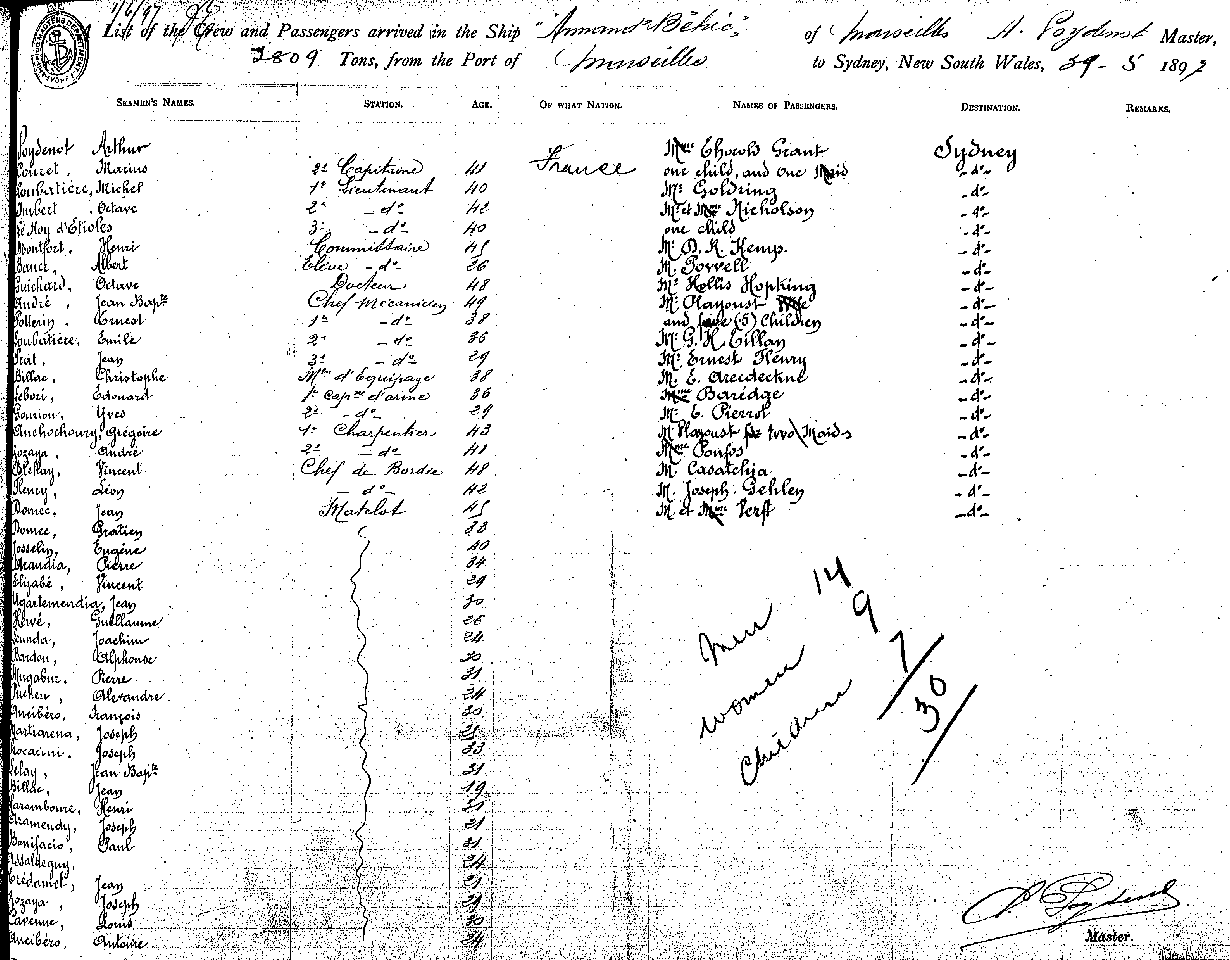 1/6/97
A List of the Crew and Passengers arrived in the Ship "Armand Béhic" of Marseilles A. Poydenot Master,
3809 Tons, from the Port of Marseilles to Sydney, New South Wales, 29 - 5 1897
SEAMEN'S NAMES. STATION. AGE. OF WHAT NATION. NAMES OF PASSENGERS. DESTINATION. REMARKS.
Poydenot Arthur Mme Grant Sydney
Marius 2e Capitaine 41 France one child, and one Maid - do -
Loubatière, Michel 1e Lieutenant 40 Mr Goldring - do -
Imbert. Octave 2e - do 42 Mr et Mme Nicholson - do -
Le Roy d'Etioles 3e - do 40 one child - do -
Montfort. Henri Commissaire 45 Mr D. R. Kemp. - do -
Albert Elève - do 26 M. Porrell - do -
Guichard, Octave Docteur 48 Mr Hollis Hopking - do -
André, Jean Bapte Chef Mécanicien 49 Mr Playoust - do -
Pollerin. Ernest 1e - do 38 and five (5) Children - do -
Loubatière, Emile 2e - do 35 Mr G. H. Gillan - do -
Prat, Jean 3e - do 29 Mr Ernest Fleury - do -
Billac, Christophe Mtre d'Equipage 38 M. E. Arcdeckne - do -
Edouard 1e Capne d'arme 36 Mme Baridge - do -
Gourion, Yves 2e - do 29 Mr E. Pierrot - do -
Anchochoury, Grégoire 1e Charpentier 43 M Playoust two Maids - do -
Lozaya, André 2e - do 41 Mme Ponfos - do -
Vincent Chef de Bordée 48 M. Casatchja - do -
Fleury, Léon - do 42 M. Joseph Gehlen - do -
Domec, Jean Matelot 45 M et Mme Verft - do -
Domec, Gratien 28
Josselin, Eugène 40
Arandia, Pierre 34
Elizabé, Vincent 29
Ugartemendia, Jean 30
Hervé, Guillaume 26
Joachim 24
Bordon, Alphonse 30
Mugabur. Pierre 31
Alexandre 24
Aneibéro, François 30
Martiarena, Joseph
Joseph 33
Selay, Jean Bapte 31
Billac, Jean 19
Haramboure, Henri 21
Aramendy, Joseph 21
Bonifacio, Paul 21
Assaldeguy, 24
Crédamet, Jean 29
Lozaya, Joseph 29
Lavenne, Louis 30
Aneibéro, Antoine 24
Men 14
women 9
Children 7
30
A. Poydenot
Master.